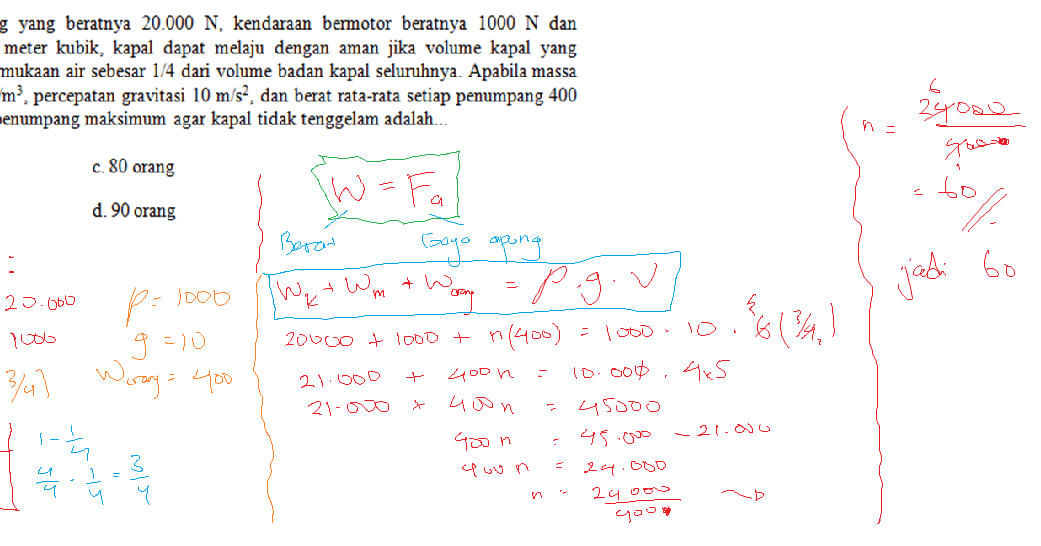 g yang beratnya 20.000 N, kendaraan bermotor beratnya 1000 N dan
meter kubik, kapal dapat melaju dengan aman jika volume kapal yang
mukaan air sebesar 1/4 dari volume badan kapal seluruhnya. Apabila massa
/m³, percepatan gravitasi 10 m/s², dan berat rata-rata setiap penumpang 400
penumpang maksimum agar kapal tidak tenggelam adalah...
c. 80 orang
d. 90 orang
:
20.000
1000
3/4)
ρ = 1000
g = 10
Worang = 400
1 - 1/4
4/4 - 1/4 = 3/4
W = Fa
Berat Gaya apung
Wk + Wm + Worang = ρ . g . V
20000 + 1000 + n(400) = 1000 . 10 . 6 (3/4)
21.000 + 400 n = 10.000 . 4,5
21.000 + 400 n = 45000
400 n = 45.000 - 21.000
400 n = 24.000
n = 24000/400
n = 24000/400
= 60
jadi 60